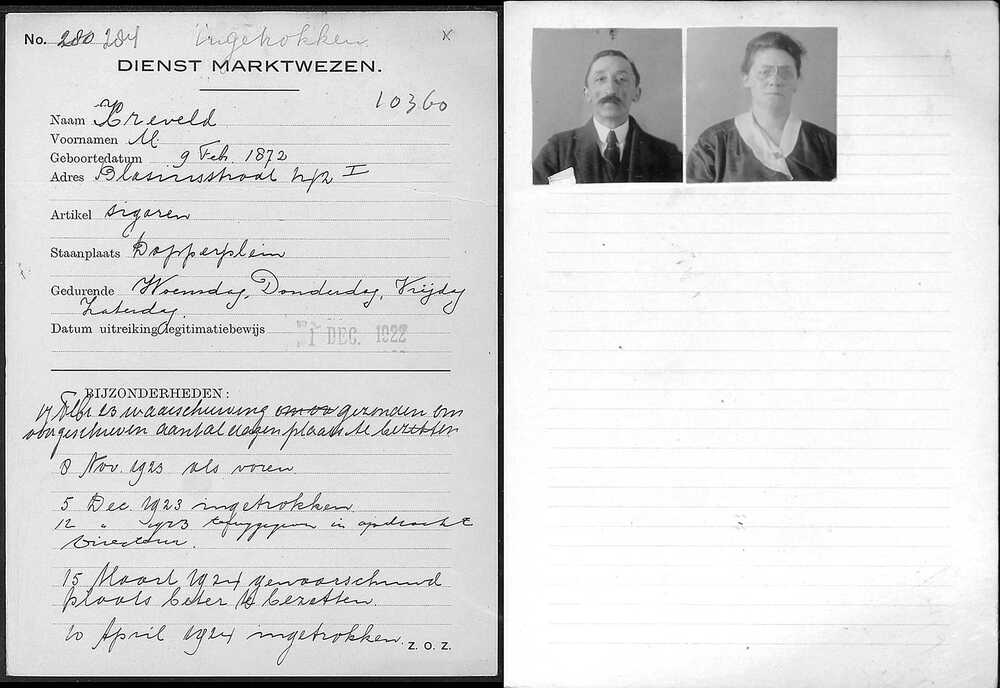 No. 280 284 ingetrokken. x
DIENST MARKTWEZEN.
10360
Naam Kreveld
Voornamen M.
Geboortedatum 9 Feb. 1872
Adres Blasiusstraat 42 I
Artikel sigaren
Staanplaats Dapperplein
Gedurende Woensdag, Donderdag, Vrijdag
Zaterdag.
Datum uitreiking legitimatiebewijs 1 DEC. 1922
BIJZONDERHEDEN:
17 Febr 23 waarschuwing gezonden om
voorgeschreven aantal dagen plaats te bezetten
8 Nov. 1923 als voren.
5 Dec. 1923 ingetrokken.
12 " 1923 teruggegeven in opdracht
Directeur.
15 Maart 1924 gewaarschuwd
plaats beter te bezetten.
10 April 1924 ingetrokken.
Z. O. Z.